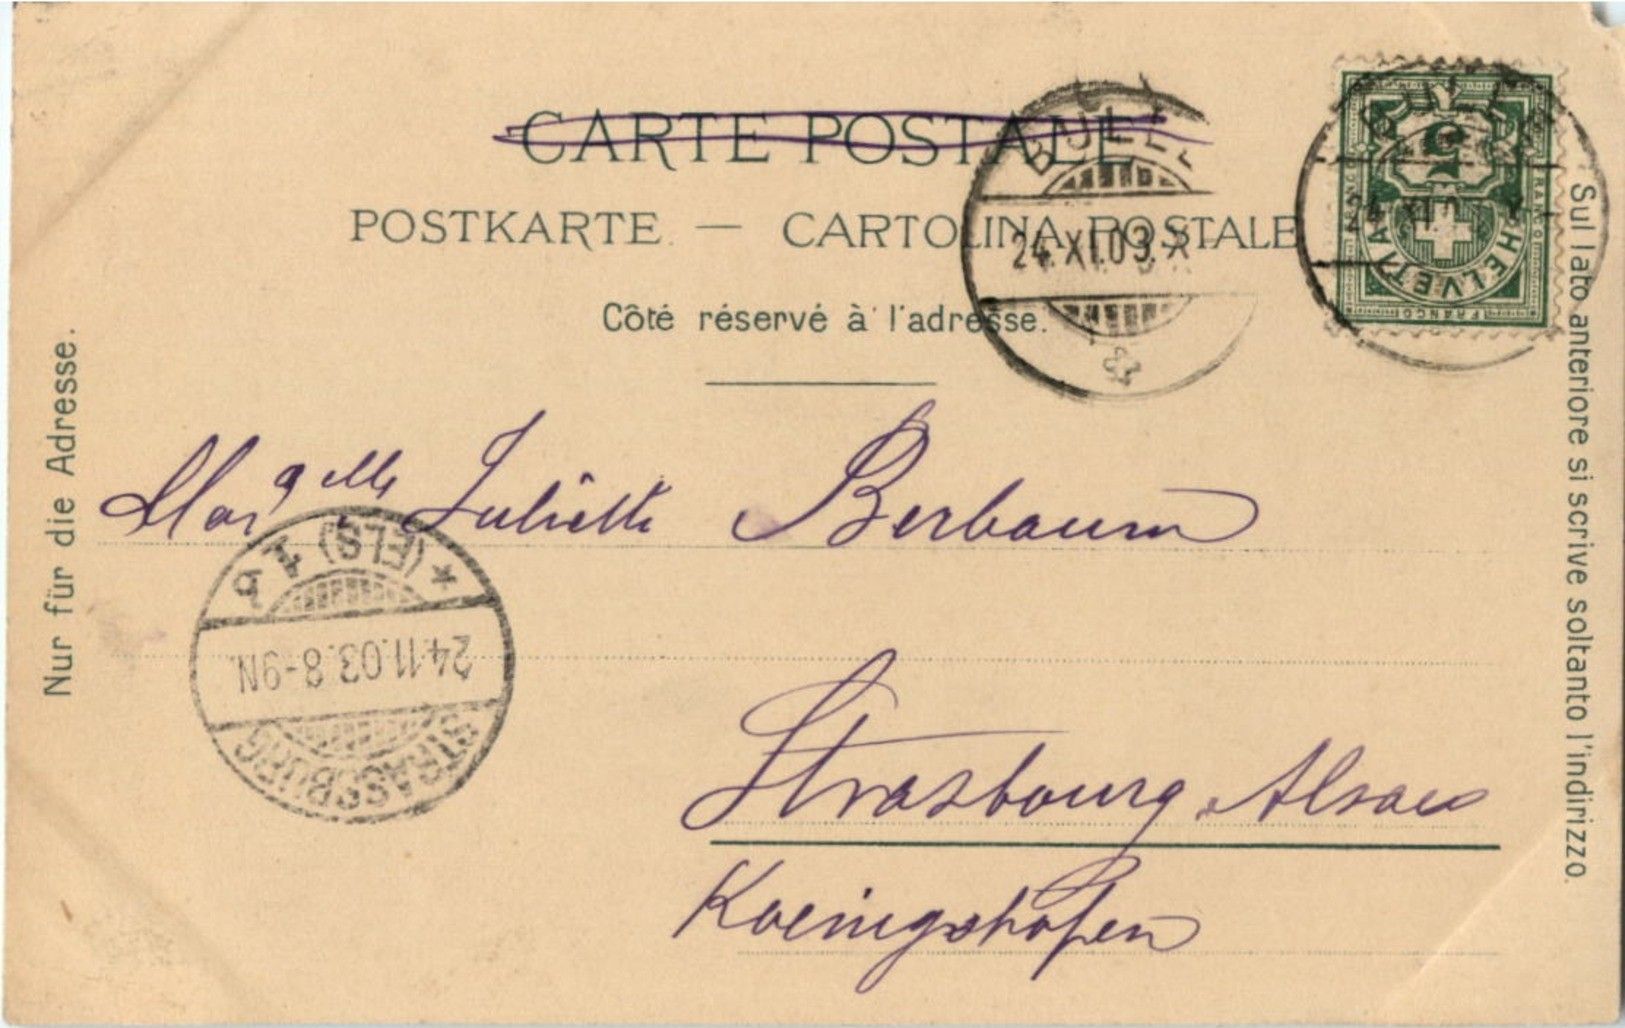 CARTE POSTALE
POSTKARTE. — CARTOLINA POSTALE
Côté réservé à l'adresse.
BULLE
24.XI.03.X
5
HELVETIA
FRANCO
Nur für die Adresse.
Sul lato anteriore si scrive soltanto l'indirizzo.
Juliette Berbaum
STRASSBURG
24.11.03.8-9N.
* (ELS) 4 b
Strasbourg Alsace
Koenigshofen